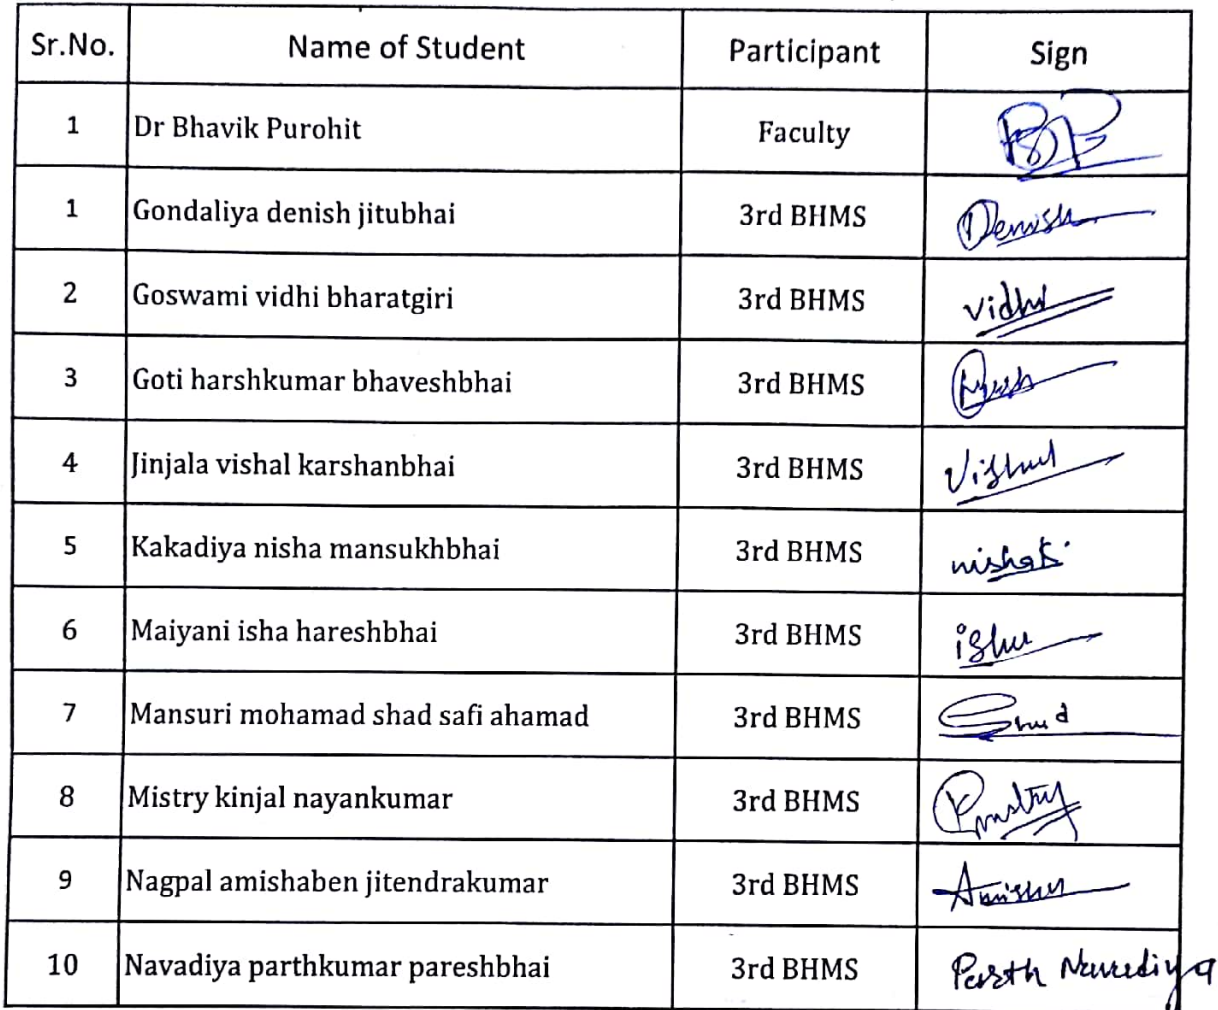 Sr.No. Name of Student Participant Sign
1 Dr Bhavik Purohit Faculty
1 Gondaliya denish jitubhai 3rd BHMS Denish
2 Goswami vidhi bharatgiri 3rd BHMS vidhi
3 Goti harshkumar bhaveshbhai 3rd BHMS
4 Jinjala vishal karshanbhai 3rd BHMS Vishal
5 Kakadiya nisha mansukhbhai 3rd BHMS
6 Maiyani isha hareshbhai 3rd BHMS isha
7 Mansuri mohamad shad safi ahamad 3rd BHMS Shad
8 Mistry kinjal nayankumar 3rd BHMS
9 Nagpal amishaben jitendrakumar 3rd BHMS Amisha
10 Navadiya parthkumar pareshbhai 3rd BHMS Parth Navadiya